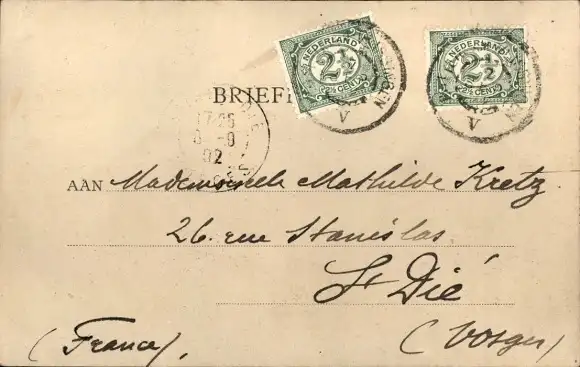 NEDERLAND
2½
2½ CENT
NEDERLAND
2½
2½ CENT
BRIEF
17-25
02
V
V
AAN Mademoiselle Mathilde Kretz
26. rue Stanislas
St Dié
(France), (Vosges)